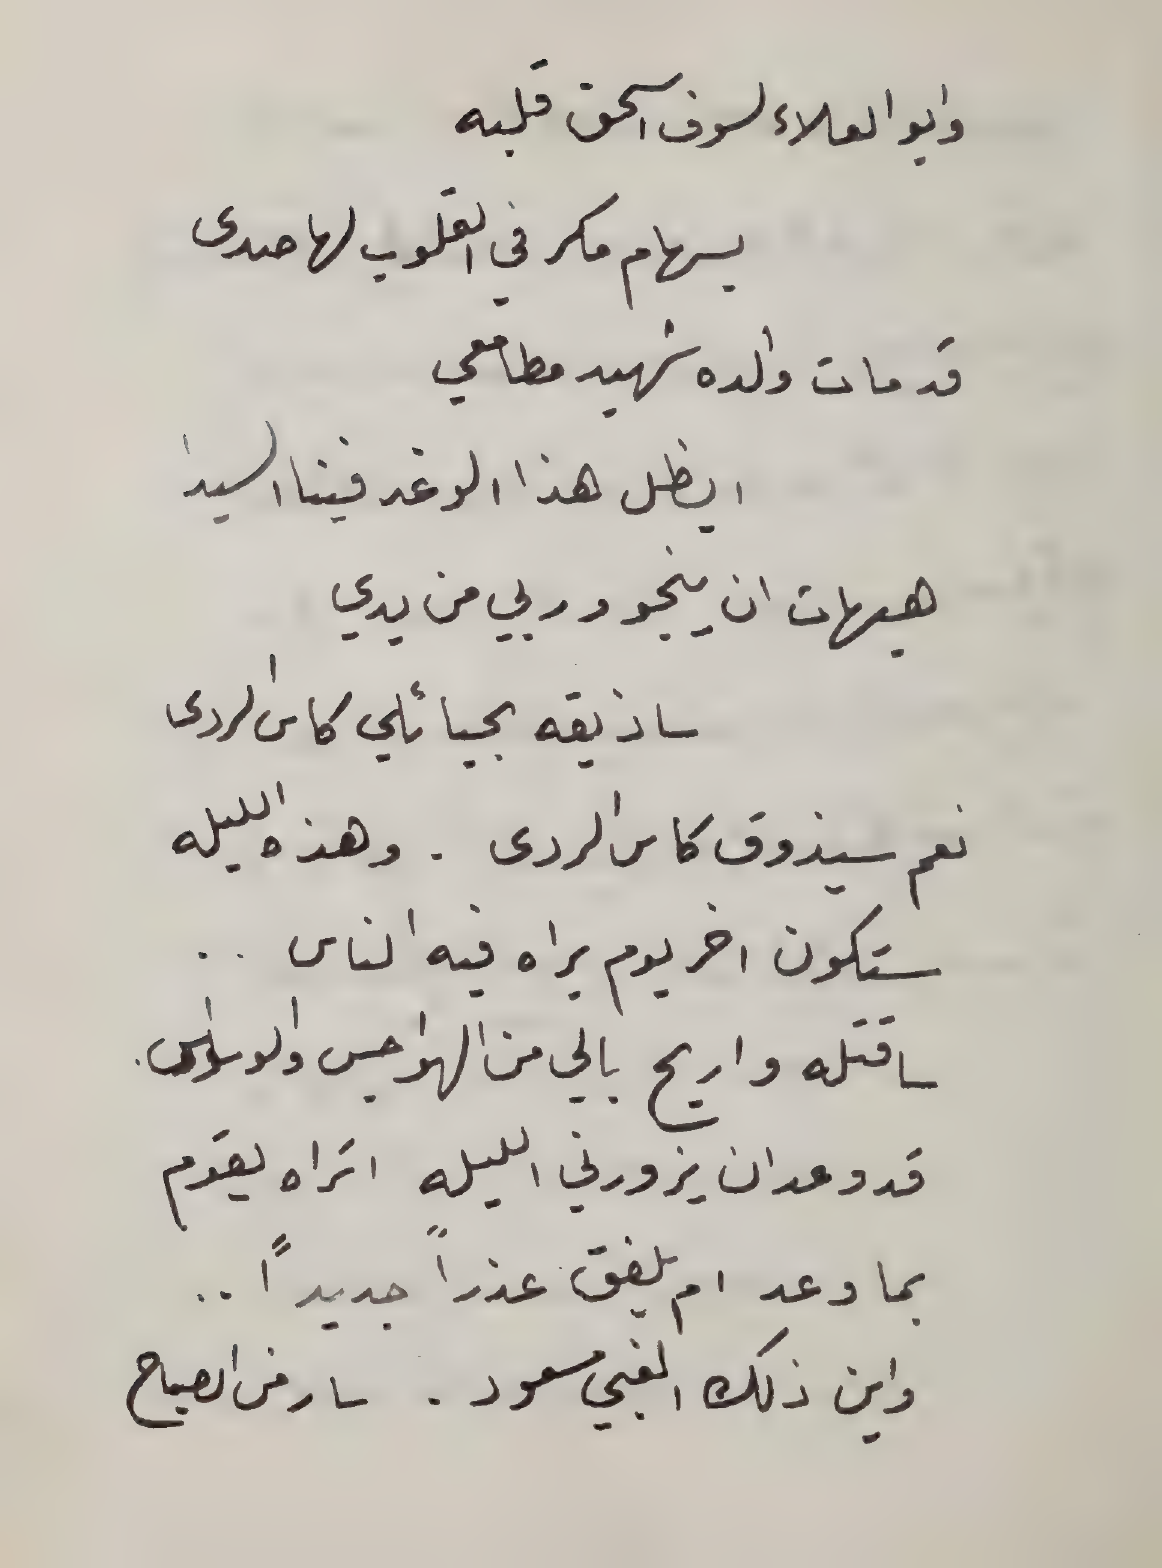 وابو العلاء لسوف اسحق قلبه
بسهام مكر في القلوب لها صدى
قد مات والده شهيد مطامعي
ايظل هذا الوغد فينا السيدا
هيهات ان ينجو وربي من يدي
ساذيقه بحبائلي كاس الردى
نعم سيذوق كاس الردى . وهذه الليله
ستكون اخر يوم يراه فيه الناس ..
ساقتله واريح بالي من الهواجس والوساوس.
قد وعد ان يزورني الليله اتراه يقوم
بما وعد ام يلفق عذراً جديداً ..
واين ذلك الغبي مسعود . سارفس الصباح